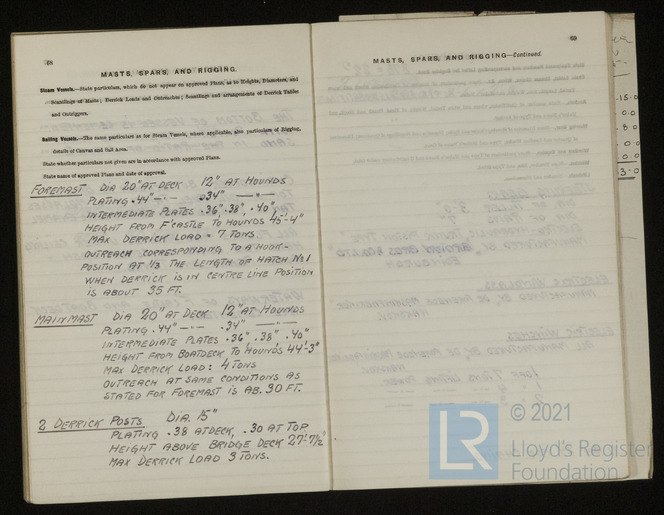 68
MASTS, SPARS, AND RIGGING.
Steam Vessels.—State particulars, which do not appear on approved Plans, as to Heights, Diameters, and
Scantlings of Masts; Derrick Loads and Outreaches; Scantlings and arrangements of Derrick Tables
and Outriggers.
Sailing Vessels.—The same particulars as for Steam Vessels, where applicable, also particulars of Rigging,
details of Canvas and Sail Area.
State whether particulars not given are in accordance with approved Plans.
State name of approved Plans and date of approval.
FOREMAST DIA 20" AT DECK 12" AT HOUNDS
PLATING .44" —"— .34" —"—
INTERMEDIATE PLATES .36", .38", .40"
HEIGHT FROM F'CASTLE TO HOUNDS 45'-4"
MAX DERRICK LOAD = 7 TONS
OUTREACH CORRESPONDING TO A HOOK-
POSITION AT 1/3 THE LENGTH OF HATCH No 1
WHEN DERRICK IS IN CENTRE LINE POSITION
IS ABOUT 35 FT.
MAINMAST DIA 20" AT DECK 12" AT HOUNDS
PLATING .44" —"— .34" —"—
INTERMEDIATE PLATES .36" .38" .40"
HEIGHT FROM BOATDECK TO HOUNDS 44'-3"
MAX DERRICK LOAD: 4 TONS
OUTREACH AT SAME CONDITIONS AS
STATED FOR FOREMAST IS AB. 30 FT.
2 DERRICK POSTS DIA. 15"
PLATING .38 AT DECK, .30 AT TOP
HEIGHT ABOVE BRIDGE DECK 27'-7½"
MAX DERRICK LOAD 3 TONS.
69
MASTS, SPARS, AND RIGGING—Continued.
© 2021
LR
Lloyd's Register
Foundation